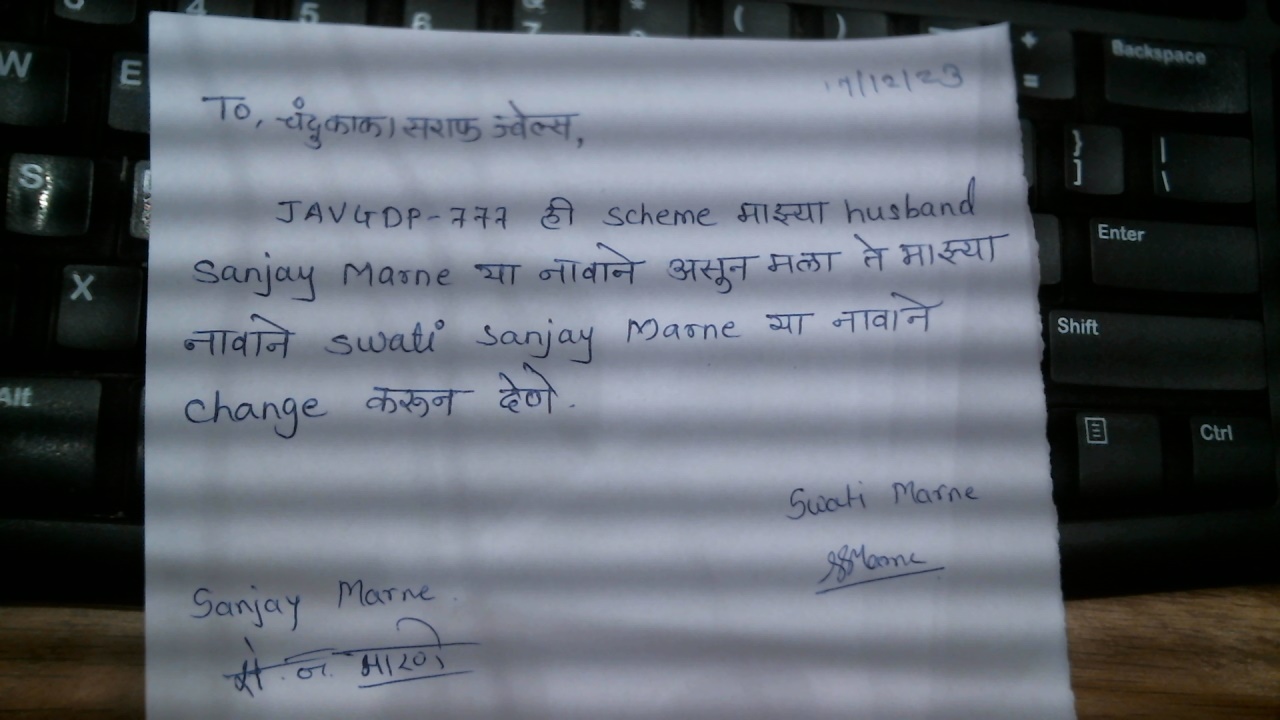 17/12/23
To, चंदुकाका सराफ ज्वेल्स,
JAVGDP-777 ही scheme माझ्या husband
Sanjay Marne या नावाने असून मला ते माझ्या
नावाने swati sanjay Marne या नावाने
change करून देणे.
Swati Marne
SSMarne
Sanjay Marne.
मारणे
W
E
S
X
Alt
Backspace
+
=
}
]
|
\
Enter
Shift
Ctrl
4
5
6
7
(
)